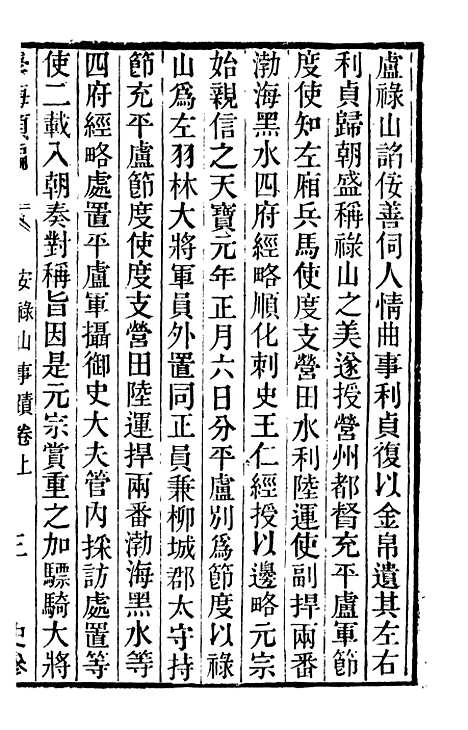 盧祿山諂佞善伺人情曲事利貞復以金帛遺其左右
利貞歸朝盛稱祿山之美遂授營州都督充平盧軍節
度使知左厢兵馬使度支營田水利陸運使副押兩番
渤海黑水四府經略順化刺史王仁經授以邊略元宗
始親信之天寶元年正月六日分平盧別爲節度以祿
山爲左羽林大將軍員外置同正員兼柳城郡太守持
節充平盧節度使度支營田陸運捍兩番渤海黑水等
四府經略處置平盧軍攝御史大夫管內採訪處置等
使二載入朝奏對稱旨因是元宗賞重之加驃騎大將
安祿山事蹟卷上
三